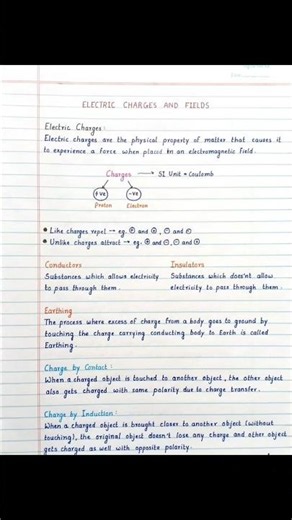 ELECTRIC CHARGES AND FIELDS
Electric Charges:
Electric charges are the physical property of matter that causes it
to experience a force when placed in an electromagnetic field.
Charges → SI Unit = Coulomb
+ve -ve
Proton Electron
• Like charges repel → eg. ⊕ and ⊕, ⊖ and ⊖
• Unlike charges attract → eg. ⊕ and ⊖, ⊖ and ⊕
Conductors Insulators
Substances which allows electricity Substances which does'nt allow
to pass through them. electricity to pass through them.
Earthing
The process where excess of charge from a body goes to ground by
touching the charge carrying conducting body to Earth is called
Earthing.
Charge by Contact:
When a charged object is touched to another object, the other object
also gets charged with same polarity due to charge transfer.
Charge by Induction:
When a charged object is brought closer to another object (without
touching), the original object doesn't lose any charge and other object
gets charged as well with opposite polarity.